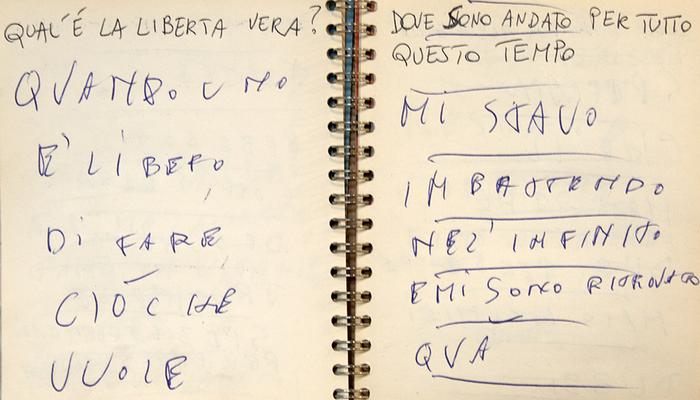 QUAL'È LA LIBERTA VERA?
QVANDO UNO
E' LIBERO
Di FARE
CIÒ CHE
VUOLE
DOVE SONO ANDATO PER TUTTO
QUESTO TEMPO
MI STAVO
IMBASTENDO
NEL' INFINITO
E MI SONO RITROVATO
QVA